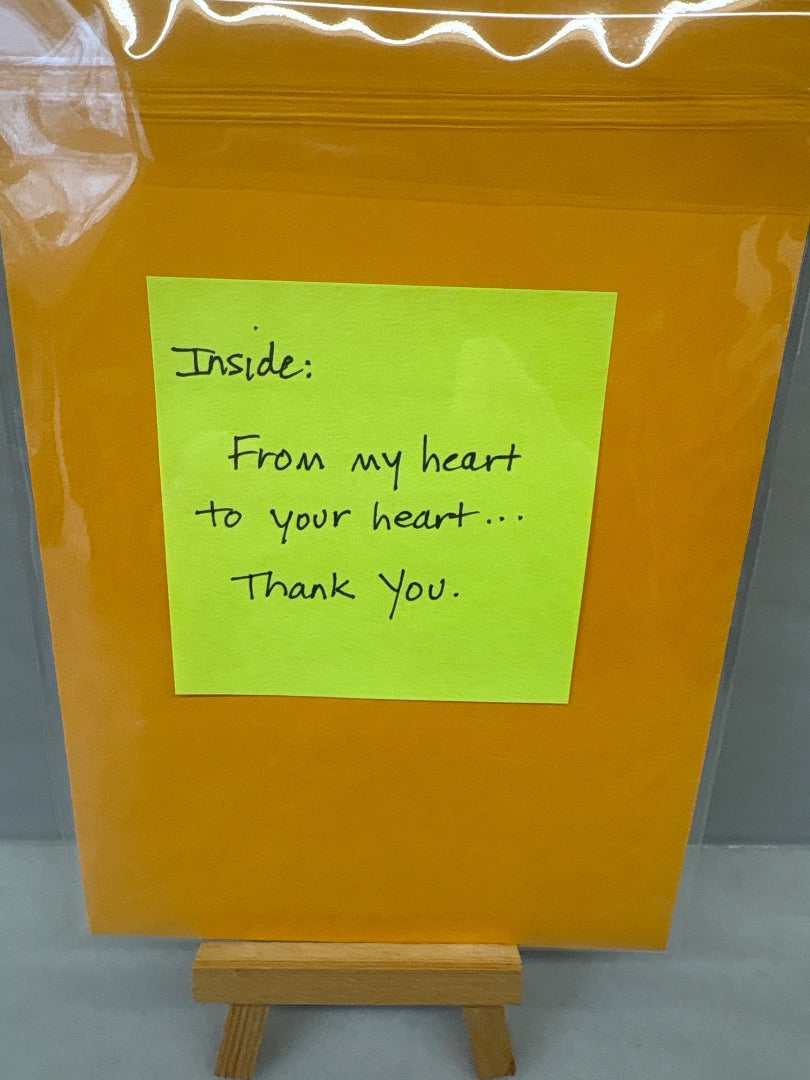 Inside:
From my heart
to your heart...
Thank You.